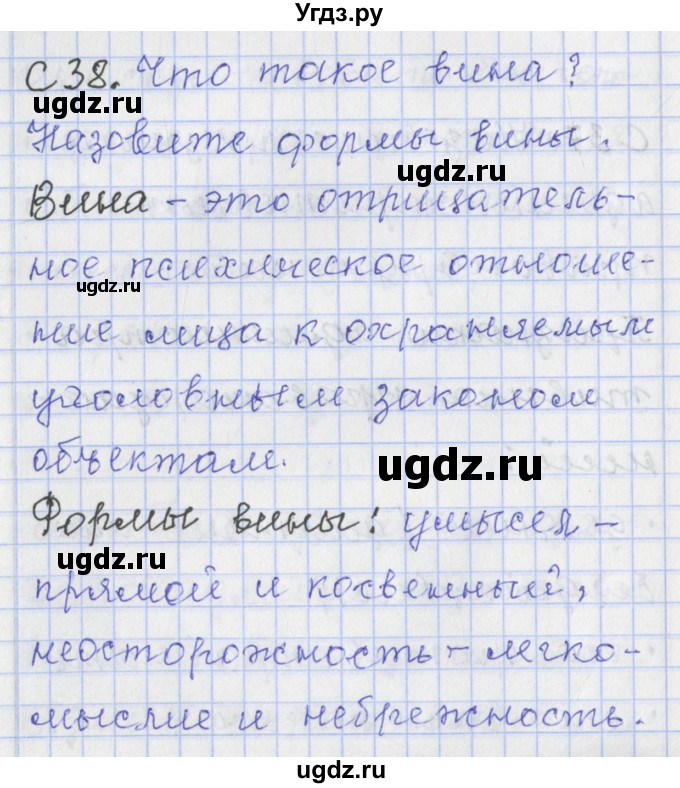 Угдз.ру
С 38. Что такое вина?
ugdz.ru
Назовите формы вины.
ugdz.ru
Вина - это отрицатель-
ное психическое отноше-
ugdz.ru
ние лица к охраняемым
уголовным законом
объектам.
ugdz.ru
Формы вины: умысел -
ugdz.ru
прямой и косвенный,
неосторожность - легко-
ugdz.ru
мыслие и небрежность.
ugdz.ru